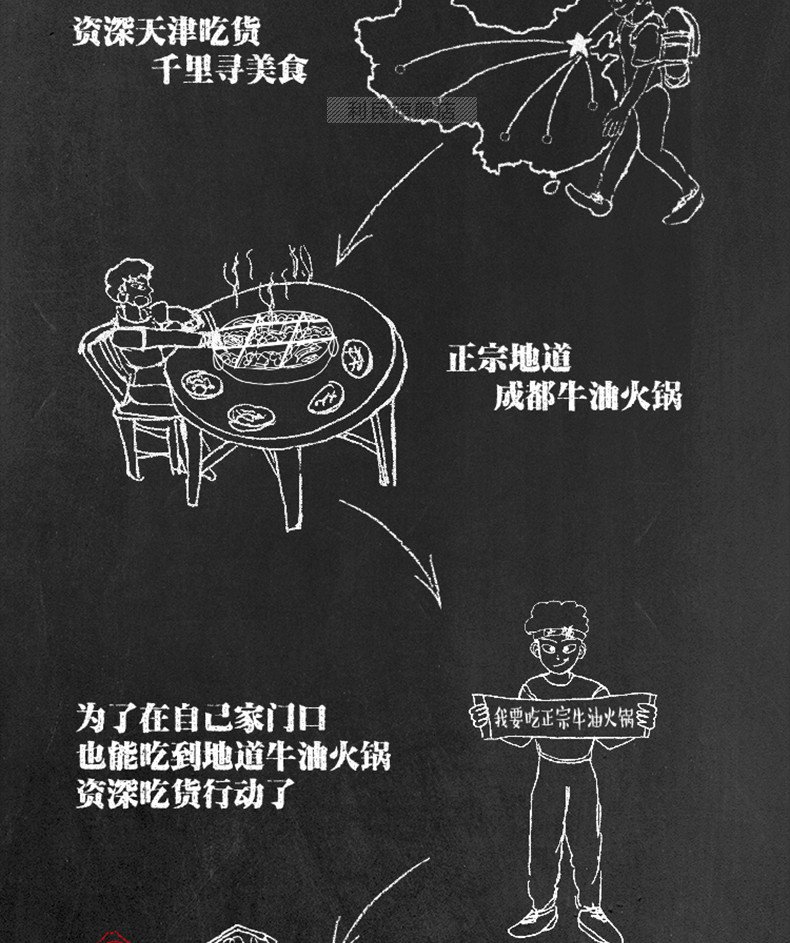 资深天津吃货
千里寻美食
利民旗舰店
正宗地道
成都牛油火锅
我要吃正宗牛油火锅
为了在自己家门口
也能吃到地道牛油火锅
资深吃货行动了